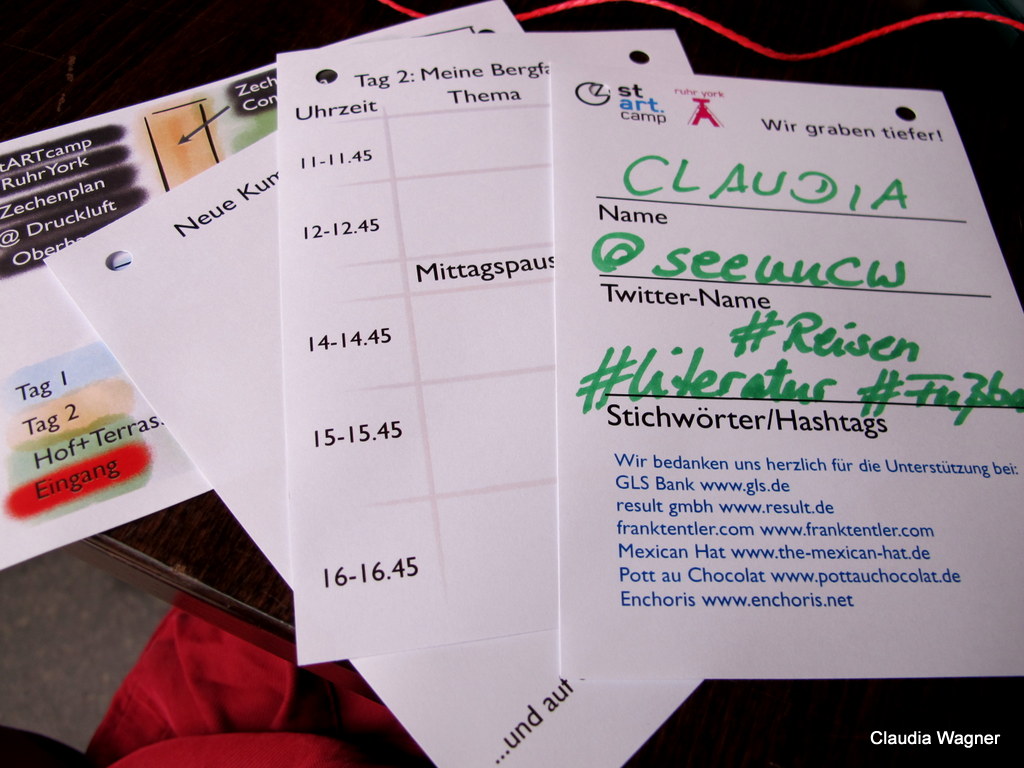 tARTcamp
RuhrYork
Zechenplan
@ Druckluft
Tag 1
Tag 2
Hof+Terras
Eingang
Neue
Tag 2: Meine
Uhrzeit
Thema
11-11.45
12-12.45
Mittagspaus
14-14.45
15-15.45
16-16.45
...und auf
st
art.
camp
ruhr york
Wir graben tiefer!
CLAUDIA
Name
@seewucw
Twitter-Name
#Reisen
#literatur #Fußba
Stichwörter/Hashtags
Wir bedanken uns herzlich für die Unterstützung bei:
GLS Bank www.gls.de
result gmbh www.result.de
franktentler.com www.franktentler.com
Mexican Hat www.the-mexican-hat.de
Pott au Chocolat www.pottauchocolat.de
Enchoris www.enchoris.net
Claudia Wagner